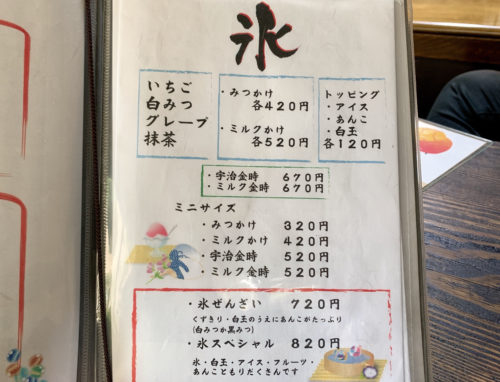 氷
いちご
白みつ
グレープ
抹茶
・みつかけ
各420円
・ミルクかけ
各520円
トッピング
・アイス
・あんこ
・白玉
各120円
・宇治金時 670円
・ミルク金時 670円
ミニサイズ
・みつかけ 320円
・ミルクかけ 420円
・宇治金時 520円
・ミルク金時 520円
・氷ぜんざい 720円
くずきり・白玉のうえにあんこがたっぷり
(白みつか黒みつ)
・氷スペシャル 820円
氷・白玉・アイス・フルーツ・
あんこともりだくさんです